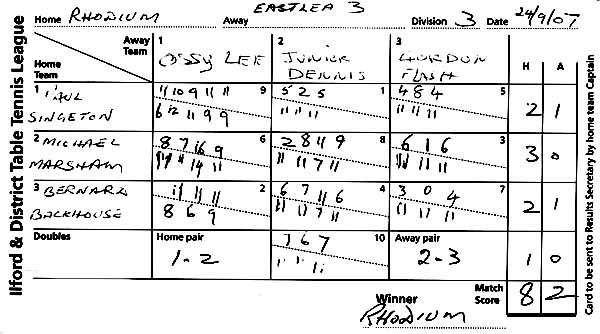 Ilford & District Table Tennis League
Home RHODIUM Away EASTLEA 3 Division 3 Date 24/9/07
Away Team
Home Team
1 OSSY LEE
2 JUNIOR DENNIS
3 GORDON FLASH
H A
1 PAUL SINGLETON
11 10 9 11 11 9
6 12 11 9 9
5 2 5 1
11 11 11
4 8 4 5
11 11 11
2 1
2 MICHAEL MARSHAM
8 7 16 9 6
14 11
2 8 11 9 8
11 11 7 11
6 1 6 3
11 11 11
3 0
3 BERNARD BACKHOUSE
11 11 11 2
8 6 9
6 7 11 6 4
11 11 7 11
3 0 4 7
11 11 11
2 1
Doubles
Home pair
1-2
7 6 7 10
11 11 11
Away pair
2-3
1 0
Winner RHODIUM
Match Score 8 2
Card to be sent to Results Secretary by home team Captain